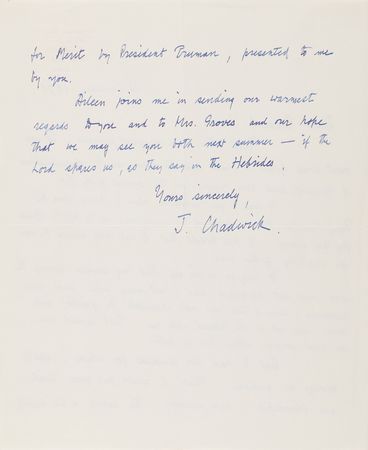 for Merit by President Truman, presented to me
by you.
Aileen joins me in sending our warmest
regards to you and to Mrs. Groves and our hope
that we may see you both next summer — if the
Lord spares us, as they say in the Hebrides.
Yours sincerely,
J. Chadwick.